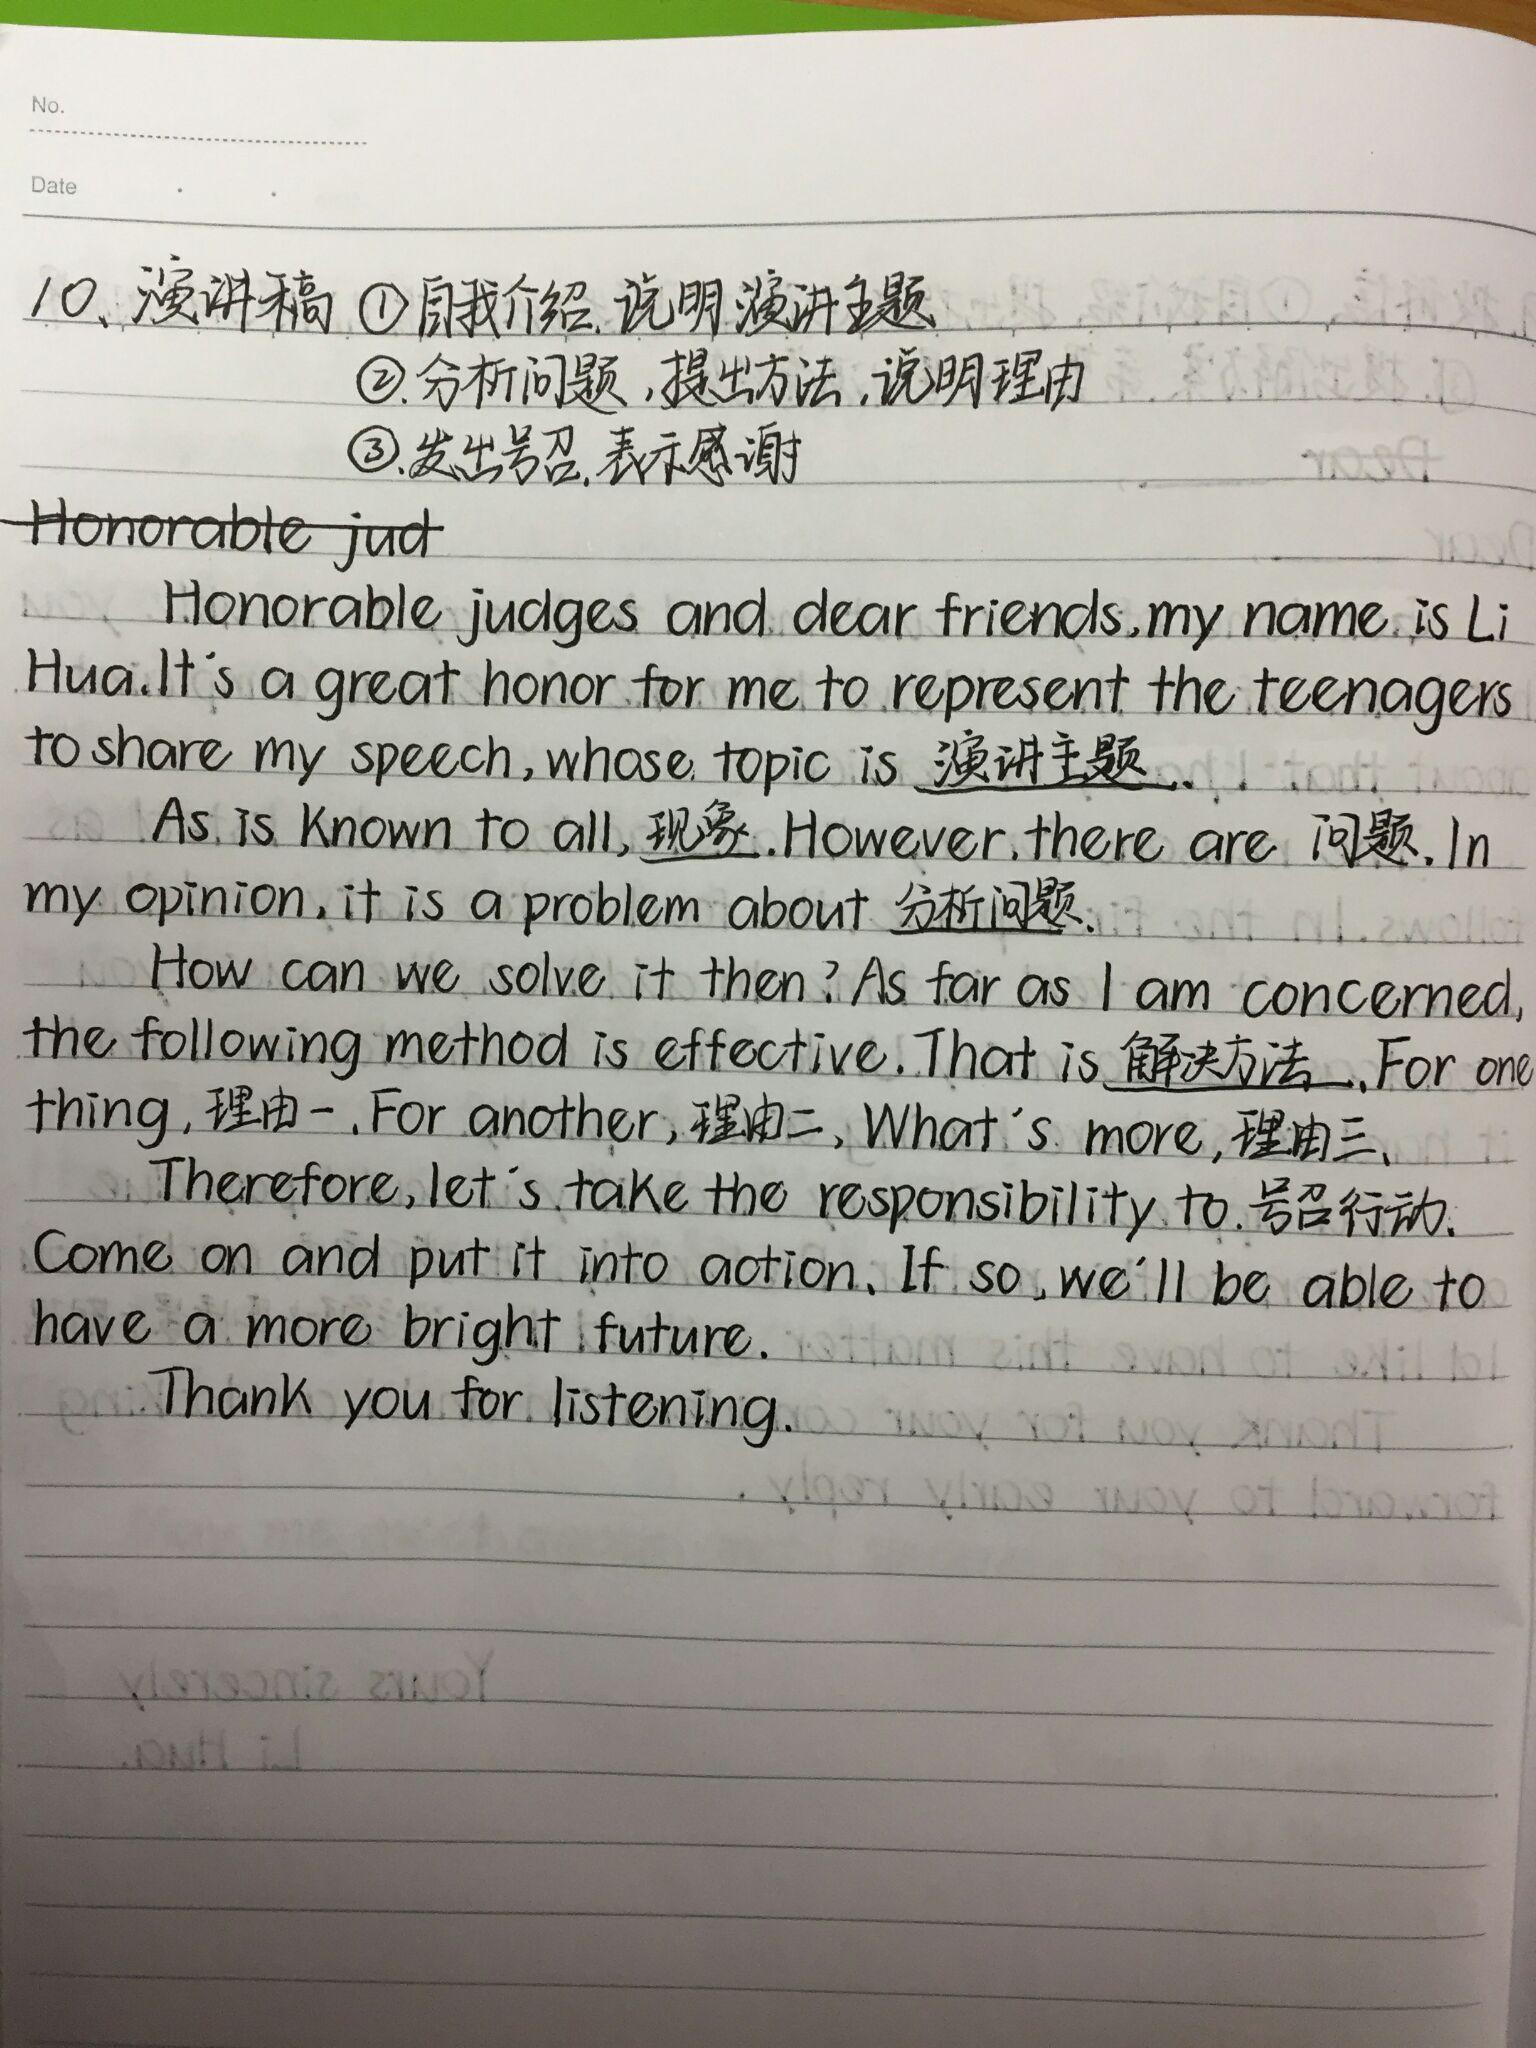 No.
Date
10、演讲稿 ①自我介绍、说明演讲主题
②.分析问题,提出方法,说明理由
③.发出号召、表示感谢
Honorable jud
Honorable judges and dear friends, my name is Li
Hua. It's a great honor for me to represent the teenagers
to share my speech, whose topic is 演讲主题.
As is known to all, 现象. However, there are 问题. In
my opinion, it is a problem about 分析问题.
How can we solve it then? As far as I am concerned,
the following method is effective. That is 解决方法. For one
thing, 理由一. For another, 理由二, What's more, 理由三、
Therefore, let's take the responsibility to 号召行动.
Come on and put it into action. If so, we'll be able to
have a more bright future.
Thank you for listening.